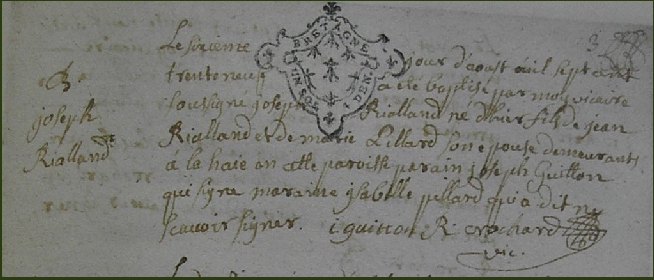 B
joseph
Rialland
BRETAGNE
UN SOL
DEN.
3
Le sixieme jour d'aoust mil sept cent
trente neuf a été baptisé par moy vicaire
soussigné joseph Rialland né d'hier fils de jean
Rialland et de marie Pillard son epouse demeurants
a la haie an cette paroisse parain joseph Guitton
qui signe maraine ysabelle pillard qui a dit ny
scavoir signer. i guitton R. crochard
vic.